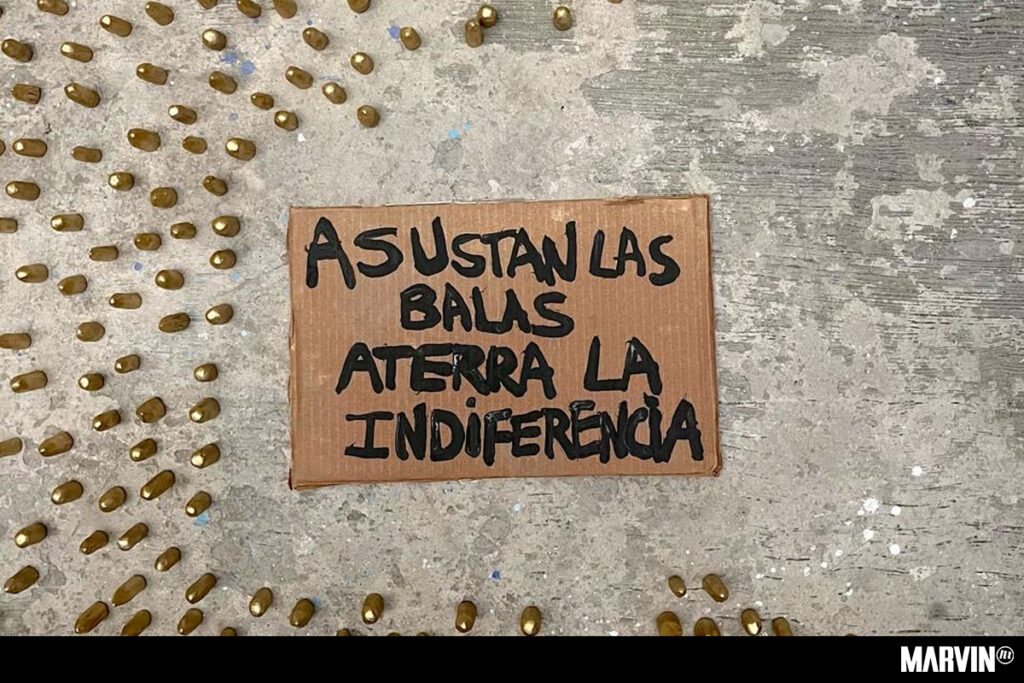 ASUSTAN LAS
BALAS
ATERRA LA
INDIFERENCIA
MARVIN m